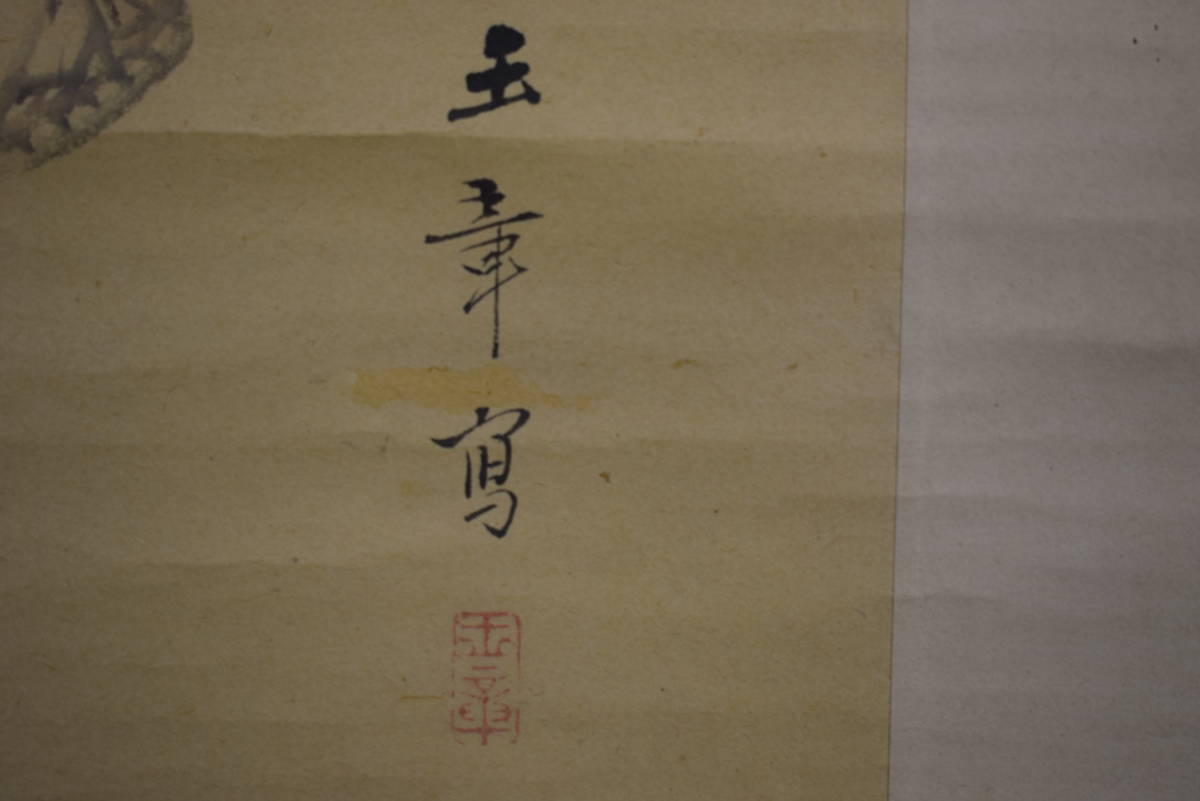 玉章寫
玉章